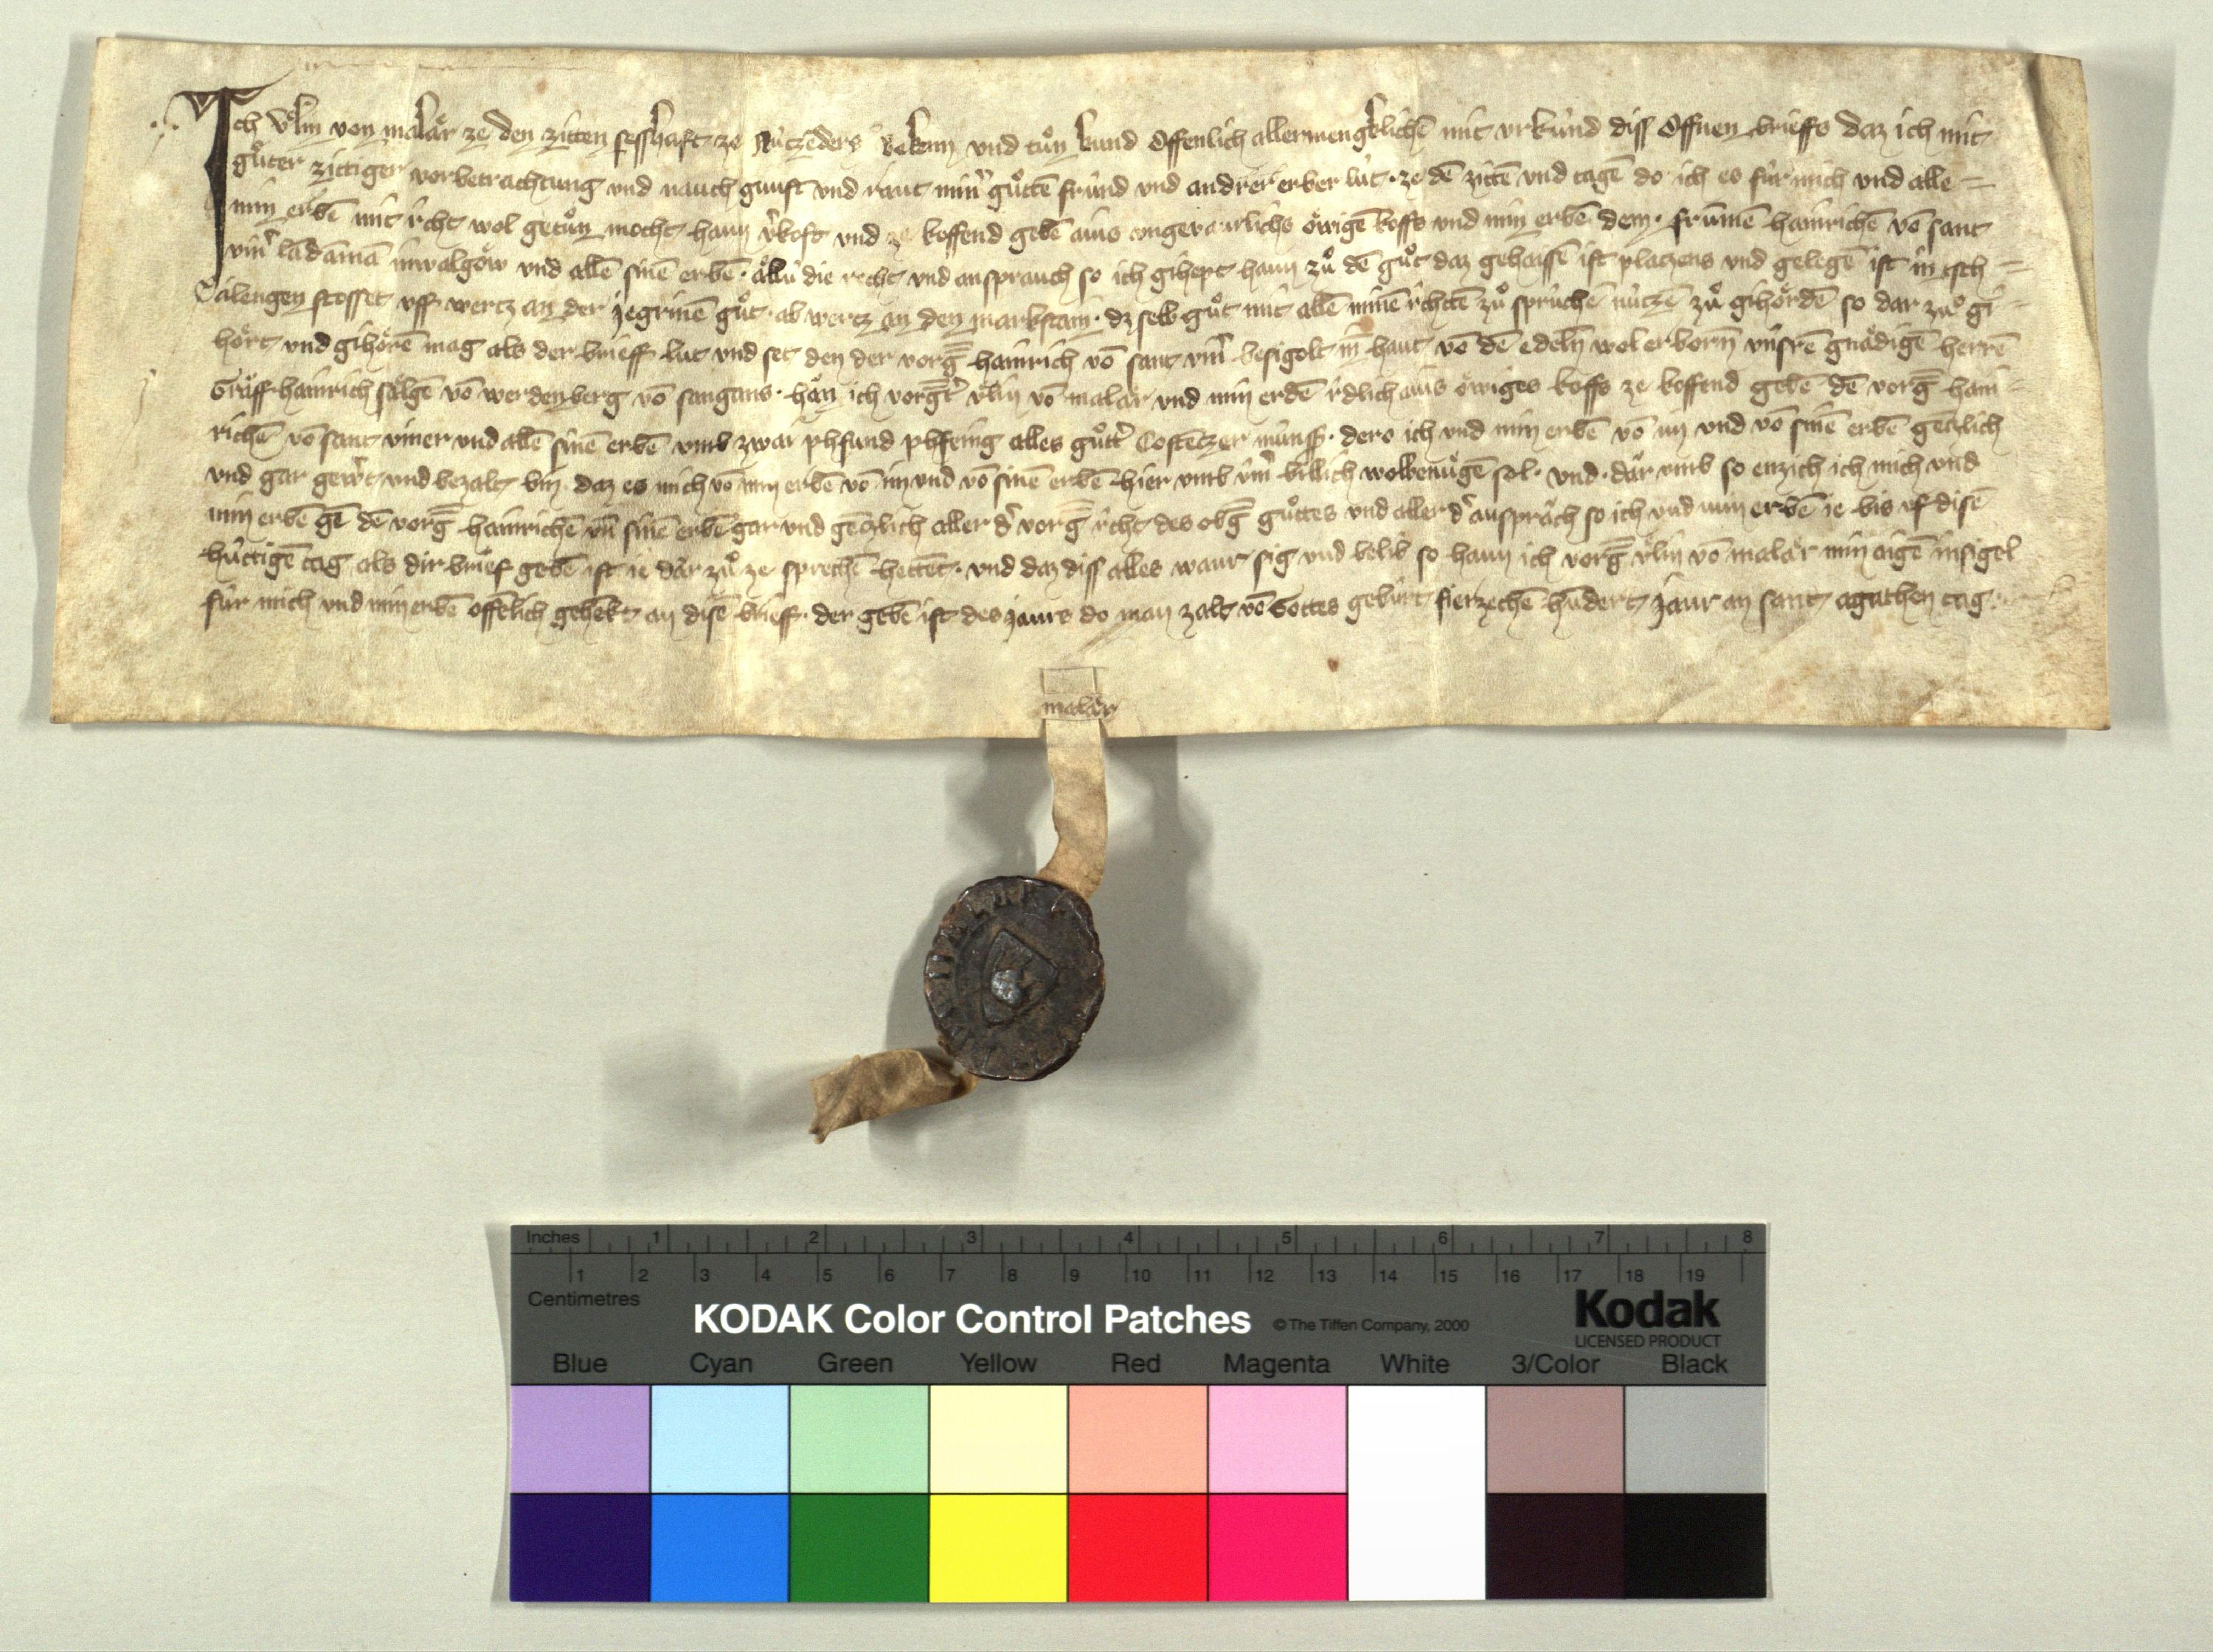 Ich Uͦlin von malaͤr ze den zitten sesshaft ze Nuͥtzēders bekenn vnd tuͦn kund Offenlich allermengklichē mit vrkuͥnd diss Offnen brieffs daz ich mit
guͦter zittiger vorbetrachtung vnd nauch gunst vnd raut minr̄ guͦttē fruͥnd vnd andrer erber luͥt · ze dē zittē vnd tagē do ich es fuͥr mich vnd alle =
min erbē mit r̄cht wol getuͦn mocht hann v̄koft vnd ze koffend gebē ains vngevarlichs oͤwigē koffs vnd min erbē dem · frumē hainrichē vō sant
vinr̄ lādāmā inwalgoͤw vnd allē sinē erbē · aͤlluͥ die recht vnd ansprauch so ich gihept hann zuͦ dē guͦt daz gehaissē ist platzens vnd gelegē ist in tsch =
alengen stosset vff wertz an der jegrinē guͦt · ab wertz an den markstain · dz selb guͦt mit allē minē r̄chtē zuͦ spruͥchē nuͥtzē zuͦ gihoͤrdē so dar zuͦ gi =
hoͤrt vnd gihoͤrē mag als der brieff lut vnd set den der vorḡ hainrich vō sant vinr̄ besigolt in̄ haut vō dē edeln̄ wol erborn̄ vnsrē gnaͤdigē herrē
Graͮff hainrich saͤlgē vō werdenberg vō sangans · haͮn ich vorḡt̄ vͦlin vō malaͤr vnd min erbē r̄dlich ains oͤwiges koffs ze koffend gebē dē vorḡ hain =
richē vō sant viner vnd allē sinē erbē vmb zwai phfund phfēing alles guͦtt̄ Costētzer muͥnss · dero ich vnd min erbē vō im vnd vō sinē erbē gētzlich
vnd gar gew̄t vnd bezalt bin daz es mich vō min erbē vō im vnd vō sinē erbē hier vmb im̄ billich wolbenuͤgē sol · vnd · daͮr vmb so enzich ich mich vnd
min erbē gē dē vorḡ hainrichē vn̄ sinē erbē gar vnd gētzlich aller dr̄ vorḡ r̄cht des obḡ guͦttes vnd aller dr̄ anspraͮch so ich vnd min erbē ie bis vf disē
huͥttigē tag als dir brief gebē ist ie daͮr zuͦ ze sprechē hettēt · vnd daz diss alles waur sig vnd belib so hann ich vorḡ vͦlin vō malaͤr min aigē insigel
fuͥr mich vnd min erbē offēlich gehēkt an disē brieff · der gebē ist des jaurs do man zalt vō Gottes geburt fierzechē hundert jaur an sant agathen tag ·
malaͤr
Inches 1 2 3 4 5 6 7 8
1 2 3 4 5 6 7 8 9 10 11 12 13 14 15 16 17 18 19
Centimetres
KODAK Color Control Patches © The Tiffen Company, 2000 Kodak
LICENSED PRODUCT
Blue Cyan Green Yellow Red Magenta White 3/Color Black